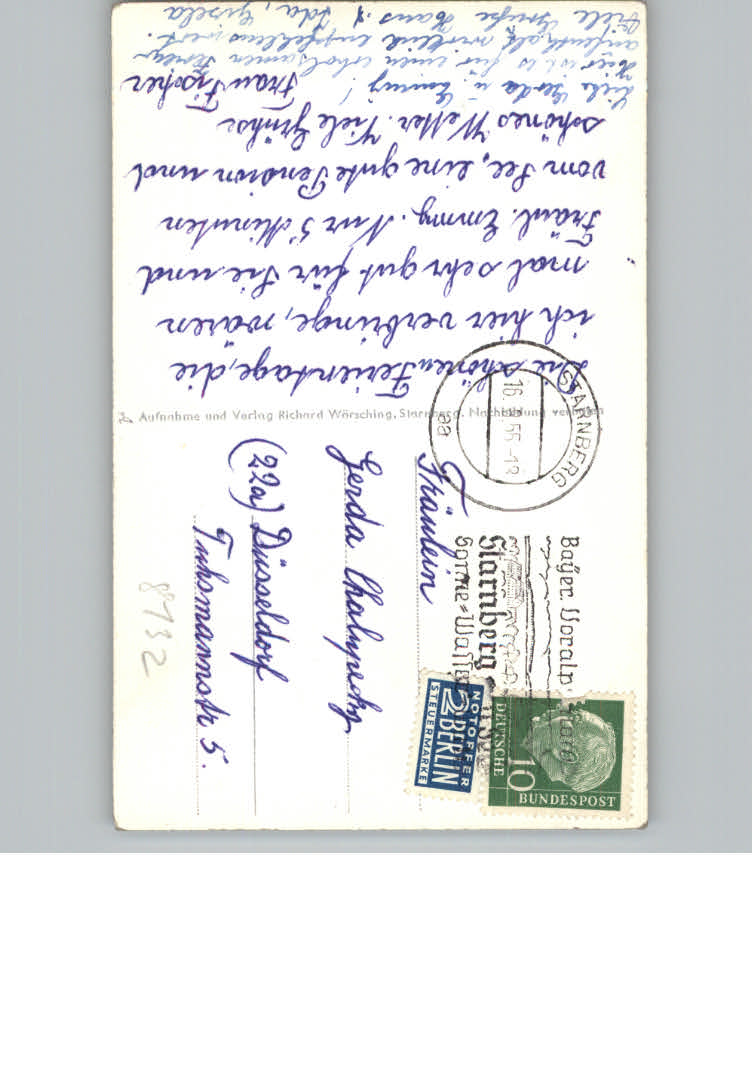 Die schönen Ferientage, die
ich hier verbringe, wären
mal sehr gut für Sie und
Fräul. Emmy. Nur 5 Minuten
vom See, eine gute Pension und
schönes Wetter. Viele Grüße
Frau Fischer
Liebe Gerda u. Emmy!
Hier ist es für einen erholsamen Ferien-
aufenthalt wirklich empfehlenswert.
Viele Grüße Hans, Ida, Gisela
Aufnahme und Verlag Richard Wörsching, Starnberg, Nachbildung verboten
STARNBERG
16. 55-18
aa
Bayer. Voralp
Starnberg
Sonne=Wasser
NOTOPFER
2 BERLIN
STEUERMARKE
DEUTSCHE
10
BUNDESPOST
Fräulein
Gerda
(22a) Düsseldorf
str. 5.
8132